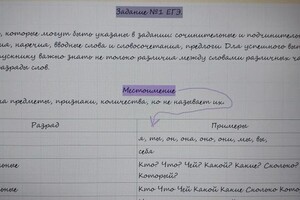 Задание №1 ЕГЭ
, которые могут быть указаны в задании сочинительные и подчинительные
, наречия, вводные слова и словосочетания, предлоги Для успешного вы
ускнику важно знать не только различия между словами различных ча
разряды слов.
Местоимение
на предметы, признаки, количества, но не называет их.
Разряд Примеры
я, ты, он, она, оно, они, мы, вы,
себя
Кто? Что? Чей? Какой? Какие? Сколько?
Который?
Кто Что Чей Какой Какие Сколько Кото